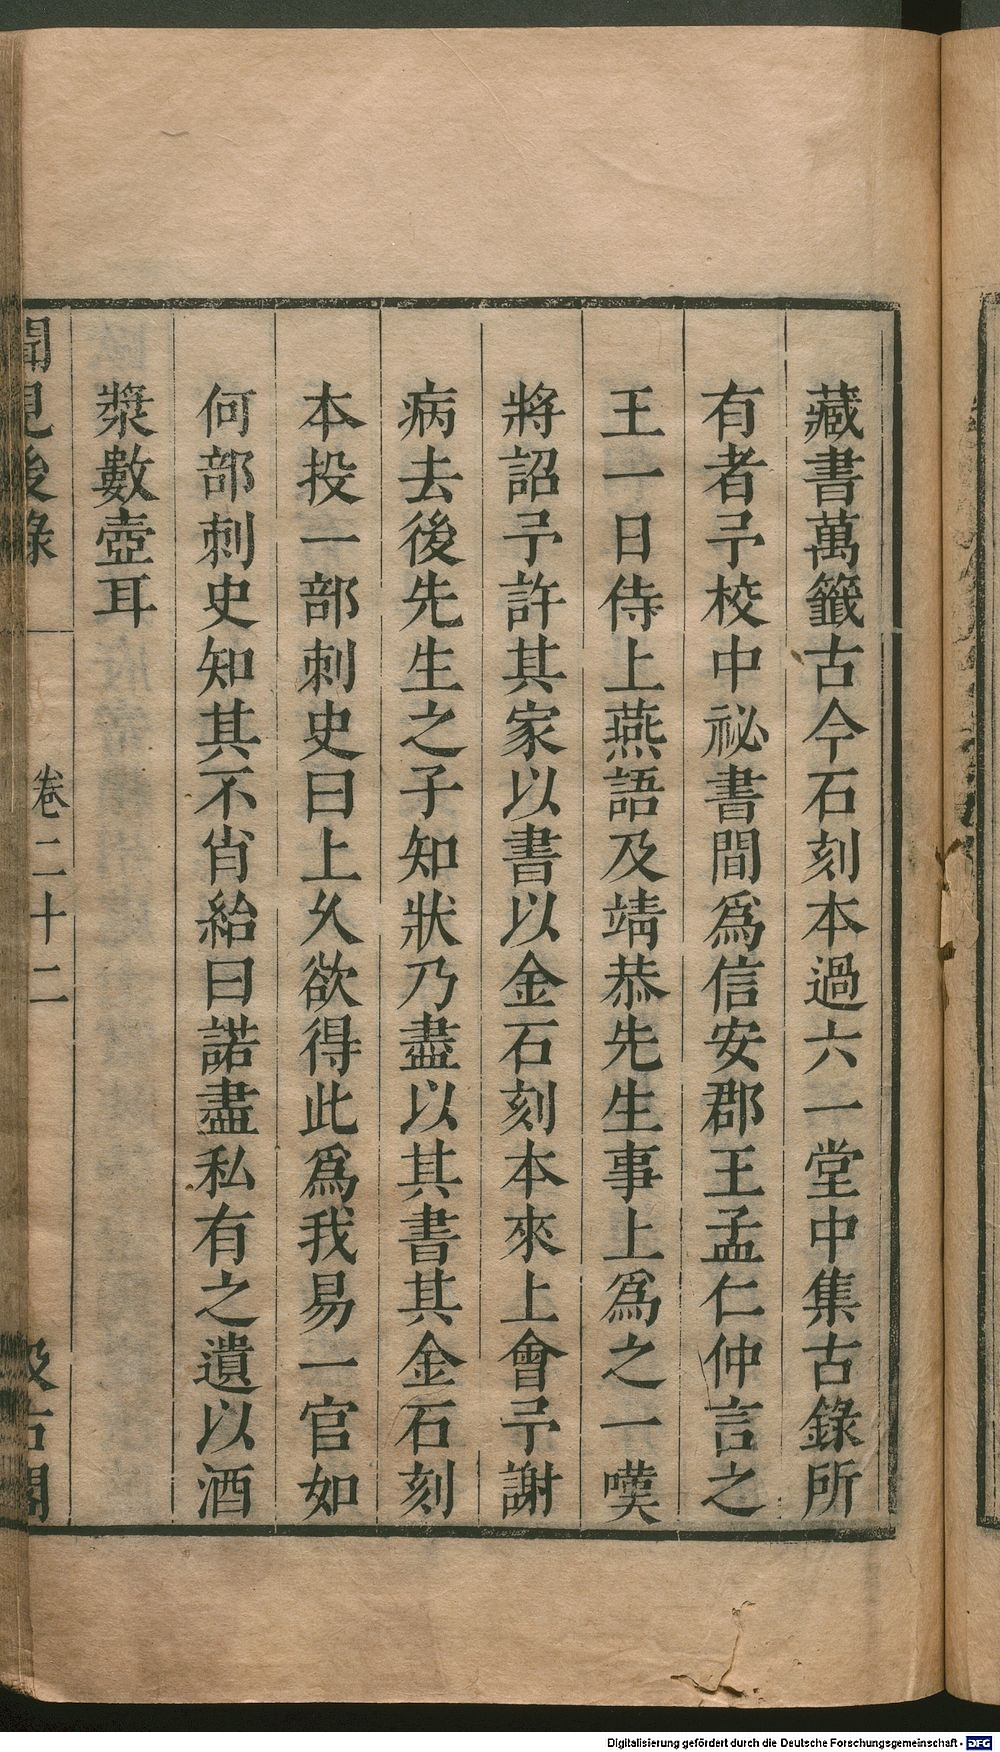 藏書萬籤古今石刻本過六一堂中集古錄所
有者予校中祕書間爲信安郡王孟仁仲言之
王一日侍上燕語及靖恭先生事上爲之一嘆
將詔予許其家以書以金石刻本來上會予謝
病去後先生之子知狀乃盡以其書其金石刻
本投一部刺史曰上久欲得此爲我易一官如
何部刺史知其不肖紿曰諾盡私有之遺以酒
漿數壺耳
聞見後錄 卷二十二 汲古閣
Digitalisierung gefördert durch die Deutsche Forschungsgemeinschaft - DFG